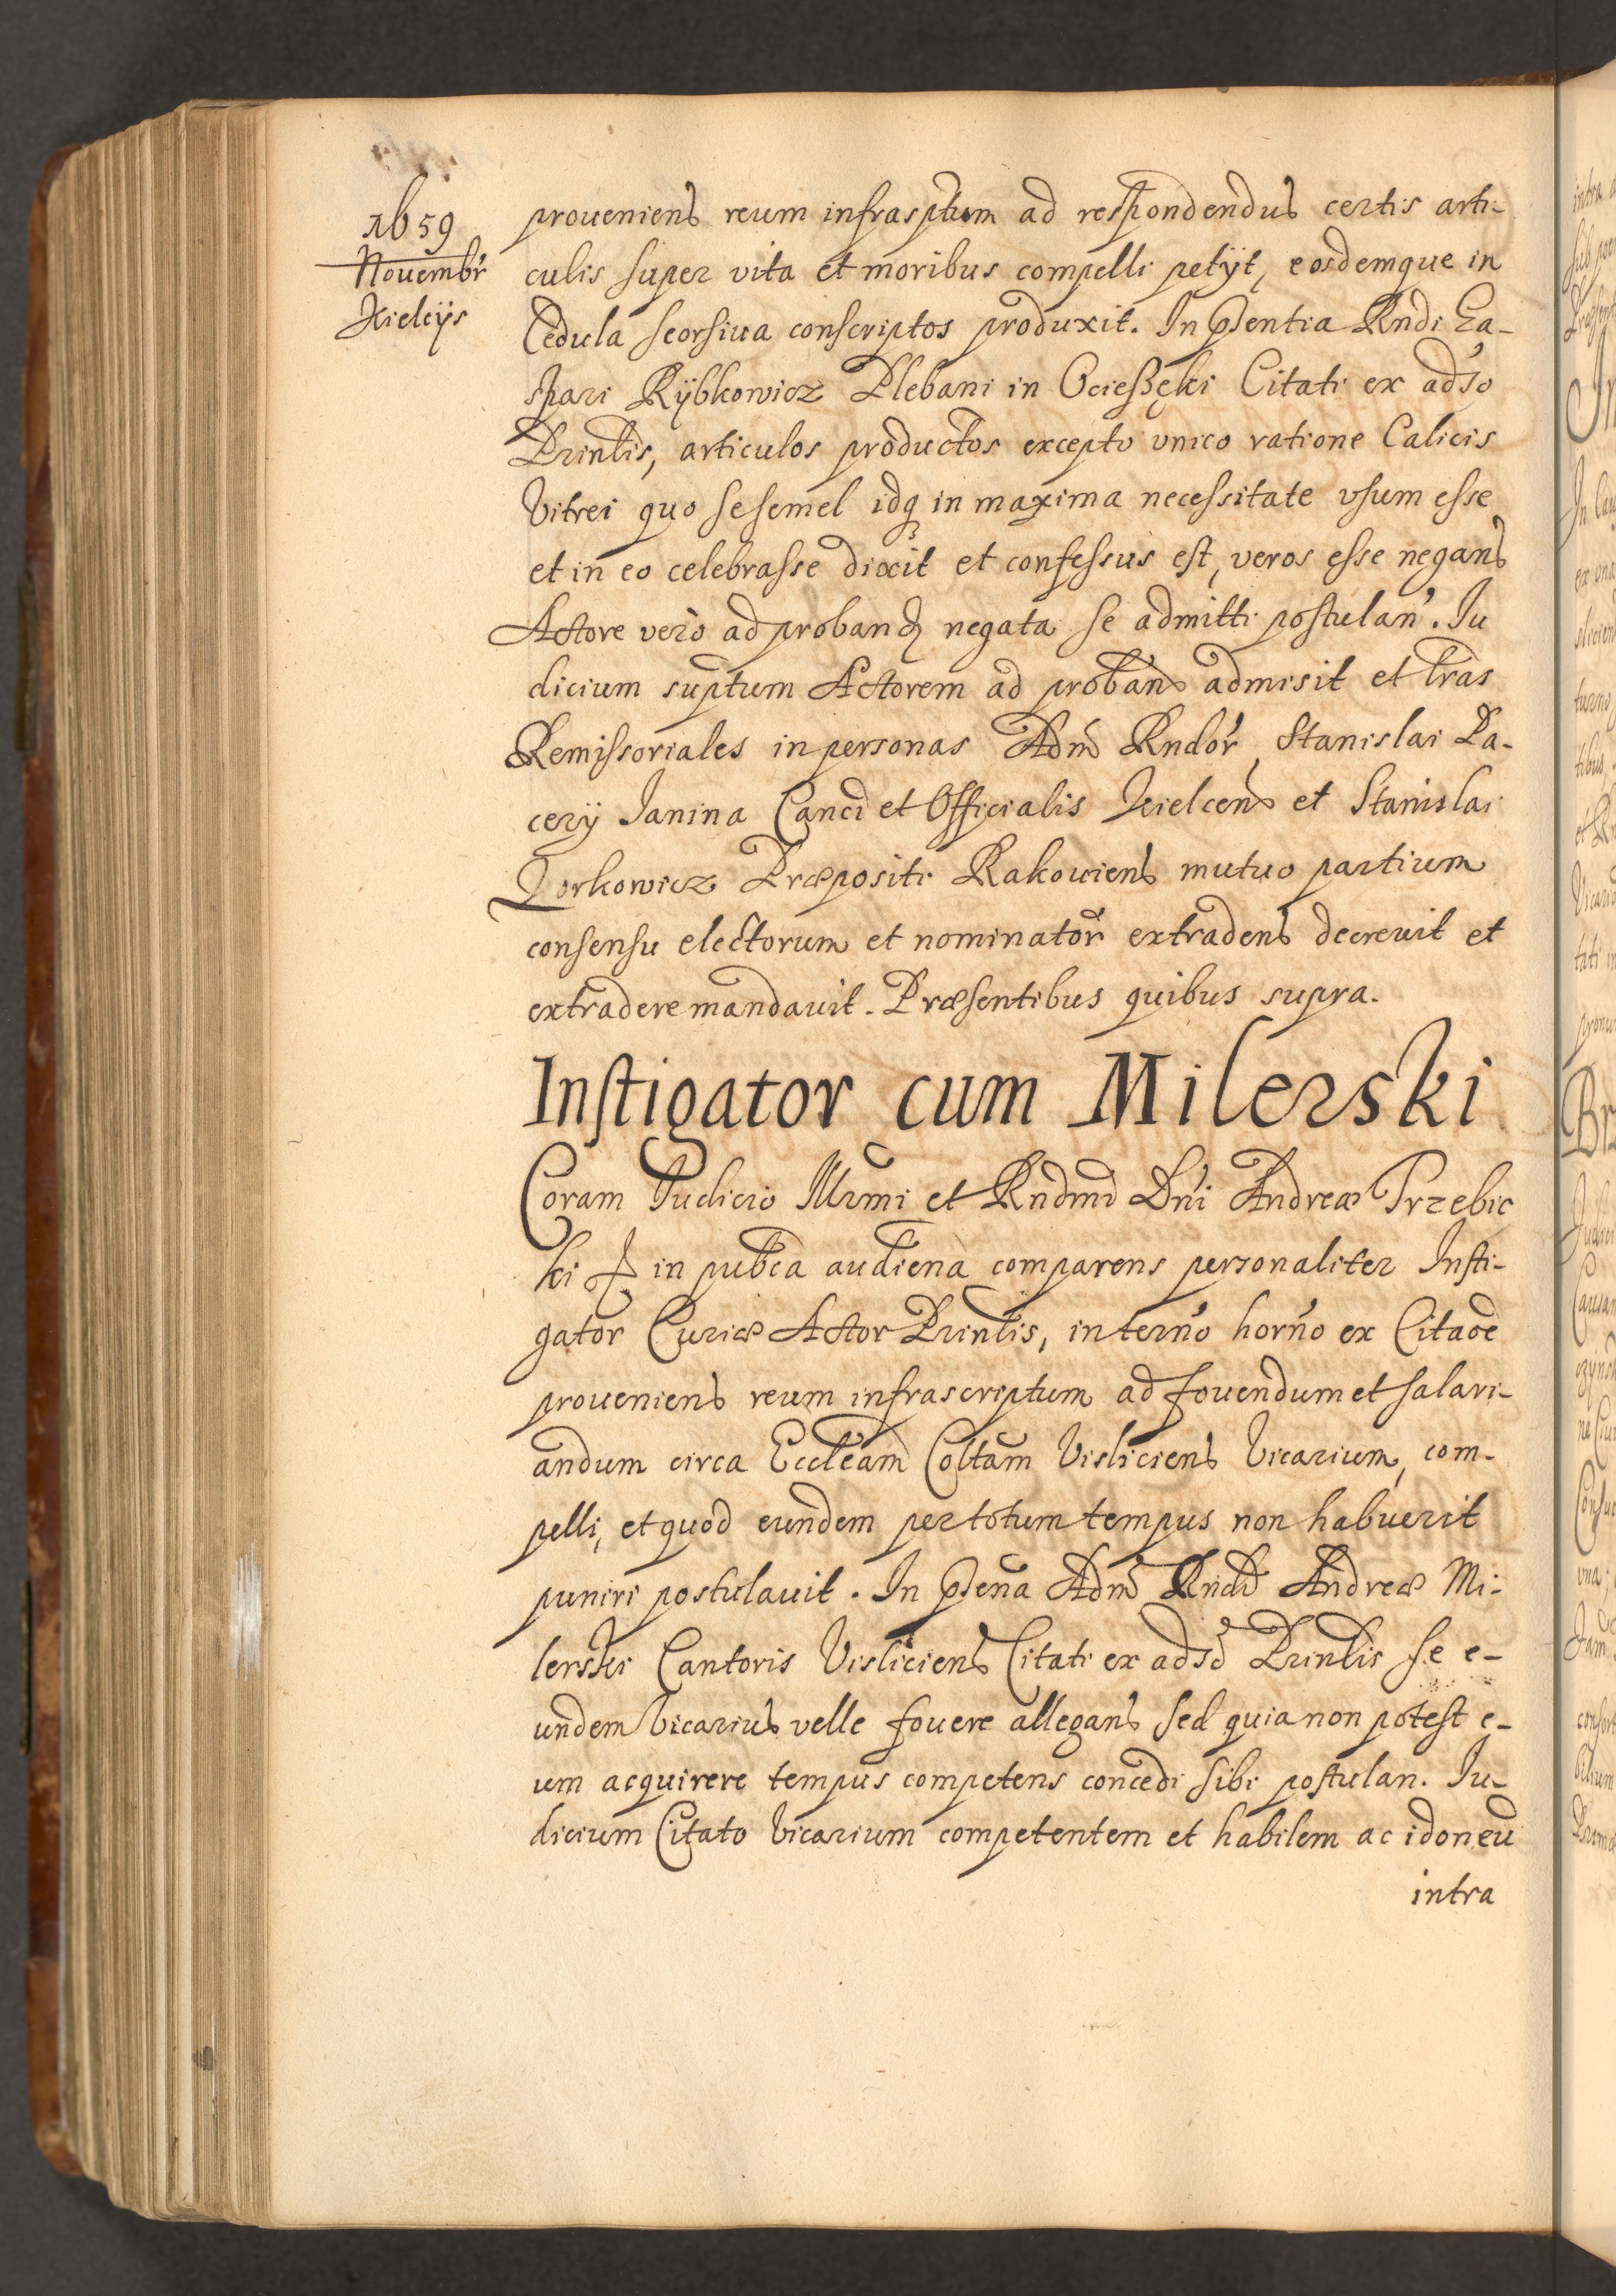 1659
Novembr
Kielcijs
proveniens reum infrasptum ad respondendus certis arti-
culis super vita et moribus compelli petijt, eosdemque in
Cedula seorsiva conscriptos produxit. In pñtia Rndi Ga-
spari Rÿbkowicz Plebani in Ocießęki Citati ex adso
Prinlis, articulos productos excepto unico ratione Calicis
Vitrei quo se semel idq in maxima necessitate usum esse
et in eo celebrasse dixit et confessus est, veros esse negans
Actore vero ad proband negata se admitti postulan. Iu
dicium suptum Actorem ad proband admisit et lras
Remissoriales in personas Adm Rndor Stanislai Pa-
cery Janina Canci et Officialis Kielcens et Stanislai
Dorkowicz Præpositi Rakoviens mutuo partium
consensu electorum et nominator extradens decrevit et
extradere mandavit. Præsentibus quibus supra.
Instigator cum Milerski
Coram Judicio Illrmi et Rndmi Dni Andreæ Trzebic
ki in pubca audiena comparens personaliter Insti-
gator Curiæ Actor Prinlis, in terno horno ex Citaoe
proveniens reum infrascriptum ad fovendum et salari-
andum circa Eccleam Colltam Visliciens Vicarium, com-
pelli, et quod eundem per totum tempus non habuerit
puniri postulavit. In pñtia Adm Rndi Andreæ Mi-
lerski Cantoris Visliciens Citati ex adso Prinlis se e-
undem Vicarius velle fovere allegans sed quia non potest e-
um acquirere tempus competens concedi sibi postulan. Iu-
dicium Citato Vicarium competentem et habilem ac idoneu
intra